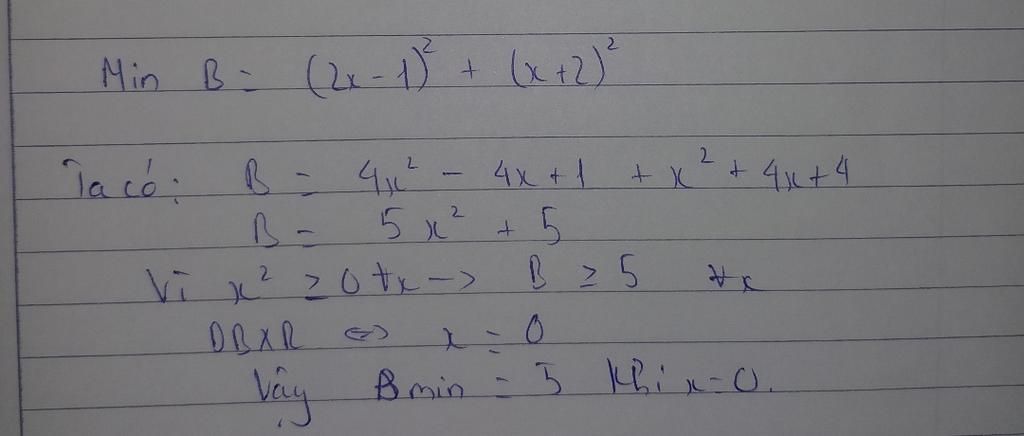 Min B = (2x - 1)² + (x+2)²
Ta có: B = 4x² - 4x + 1 + x² + 4x + 4
B = 5x² + 5
Vì x² ≥ 0 ∀x -> B ≥ 5 ∀x
DBXR <=> x = 0
Vậy Bmin = 5 khi x = 0.